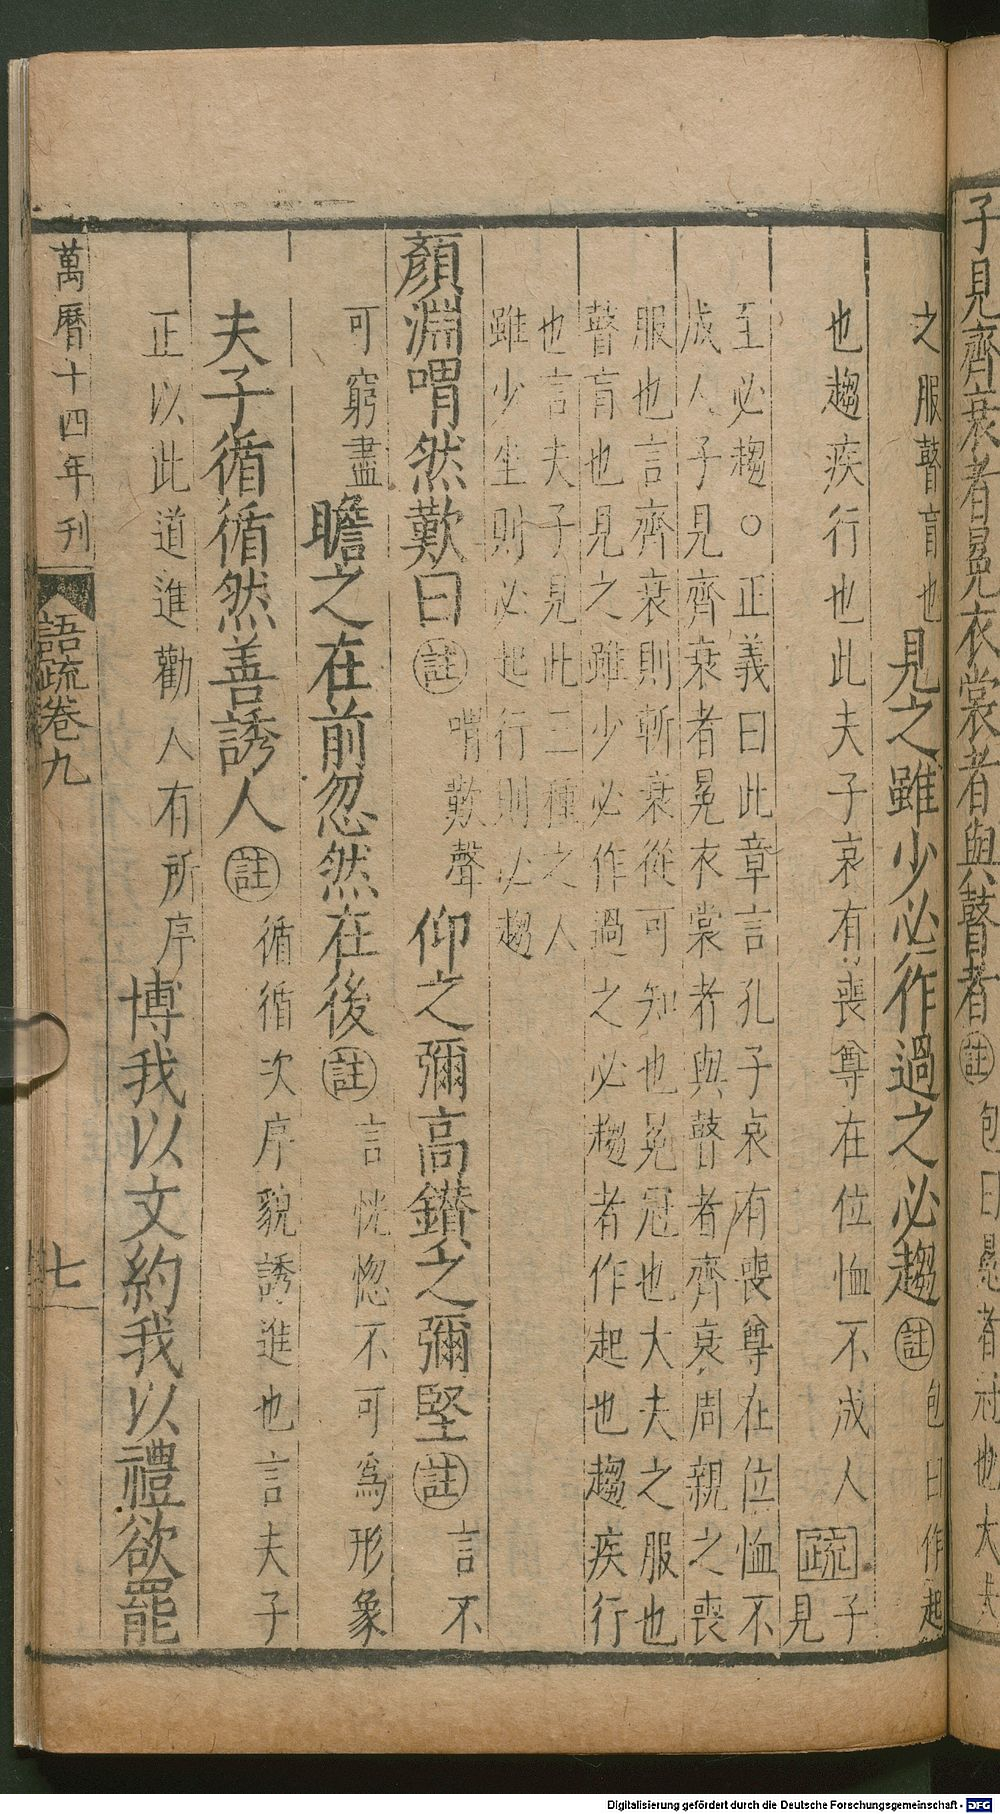 子見齊衰者冕衣裳者與瞽者註包曰冕者冠也大夫
之服瞽盲也見之雖少必作過之必趨註包曰作起
也趨疾行也此夫子哀有喪尊在位恤不成人疏子見
至必趨○正義曰此章言孔子哀有喪尊在位恤不
成人子見齊衰者冕衣裳者與瞽者齊衰周親之喪
服也言齊衰則斬衰從可知也冕冠也大夫之服也
瞽盲也見之雖少必作過之必趨者作起也趨疾行
也言夫子見此三種之人
雖少坐則必起行則必趨
顏淵喟然歎曰註喟歎聲仰之彌高鑽之彌堅註言不
可窮盡瞻之在前忽然在後註言恍惚不可為形象
夫子循循然善誘人註循循次序貌誘進也言夫子
正以此道進勸人有所序博我以文約我以禮欲罷
萬曆十四年刊
語疏卷九
七
Digitalisierung gefördert durch die Deutsche Forschungsgemeinschaft - DFG